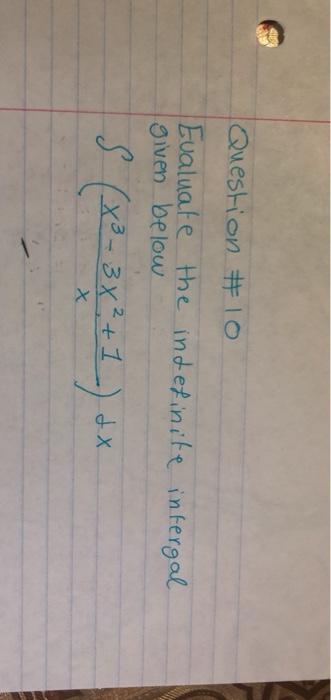 Question # 10
Evaluate the indefinite intergal
given below
∫ (x³ - 3x² + 1 / x) dx